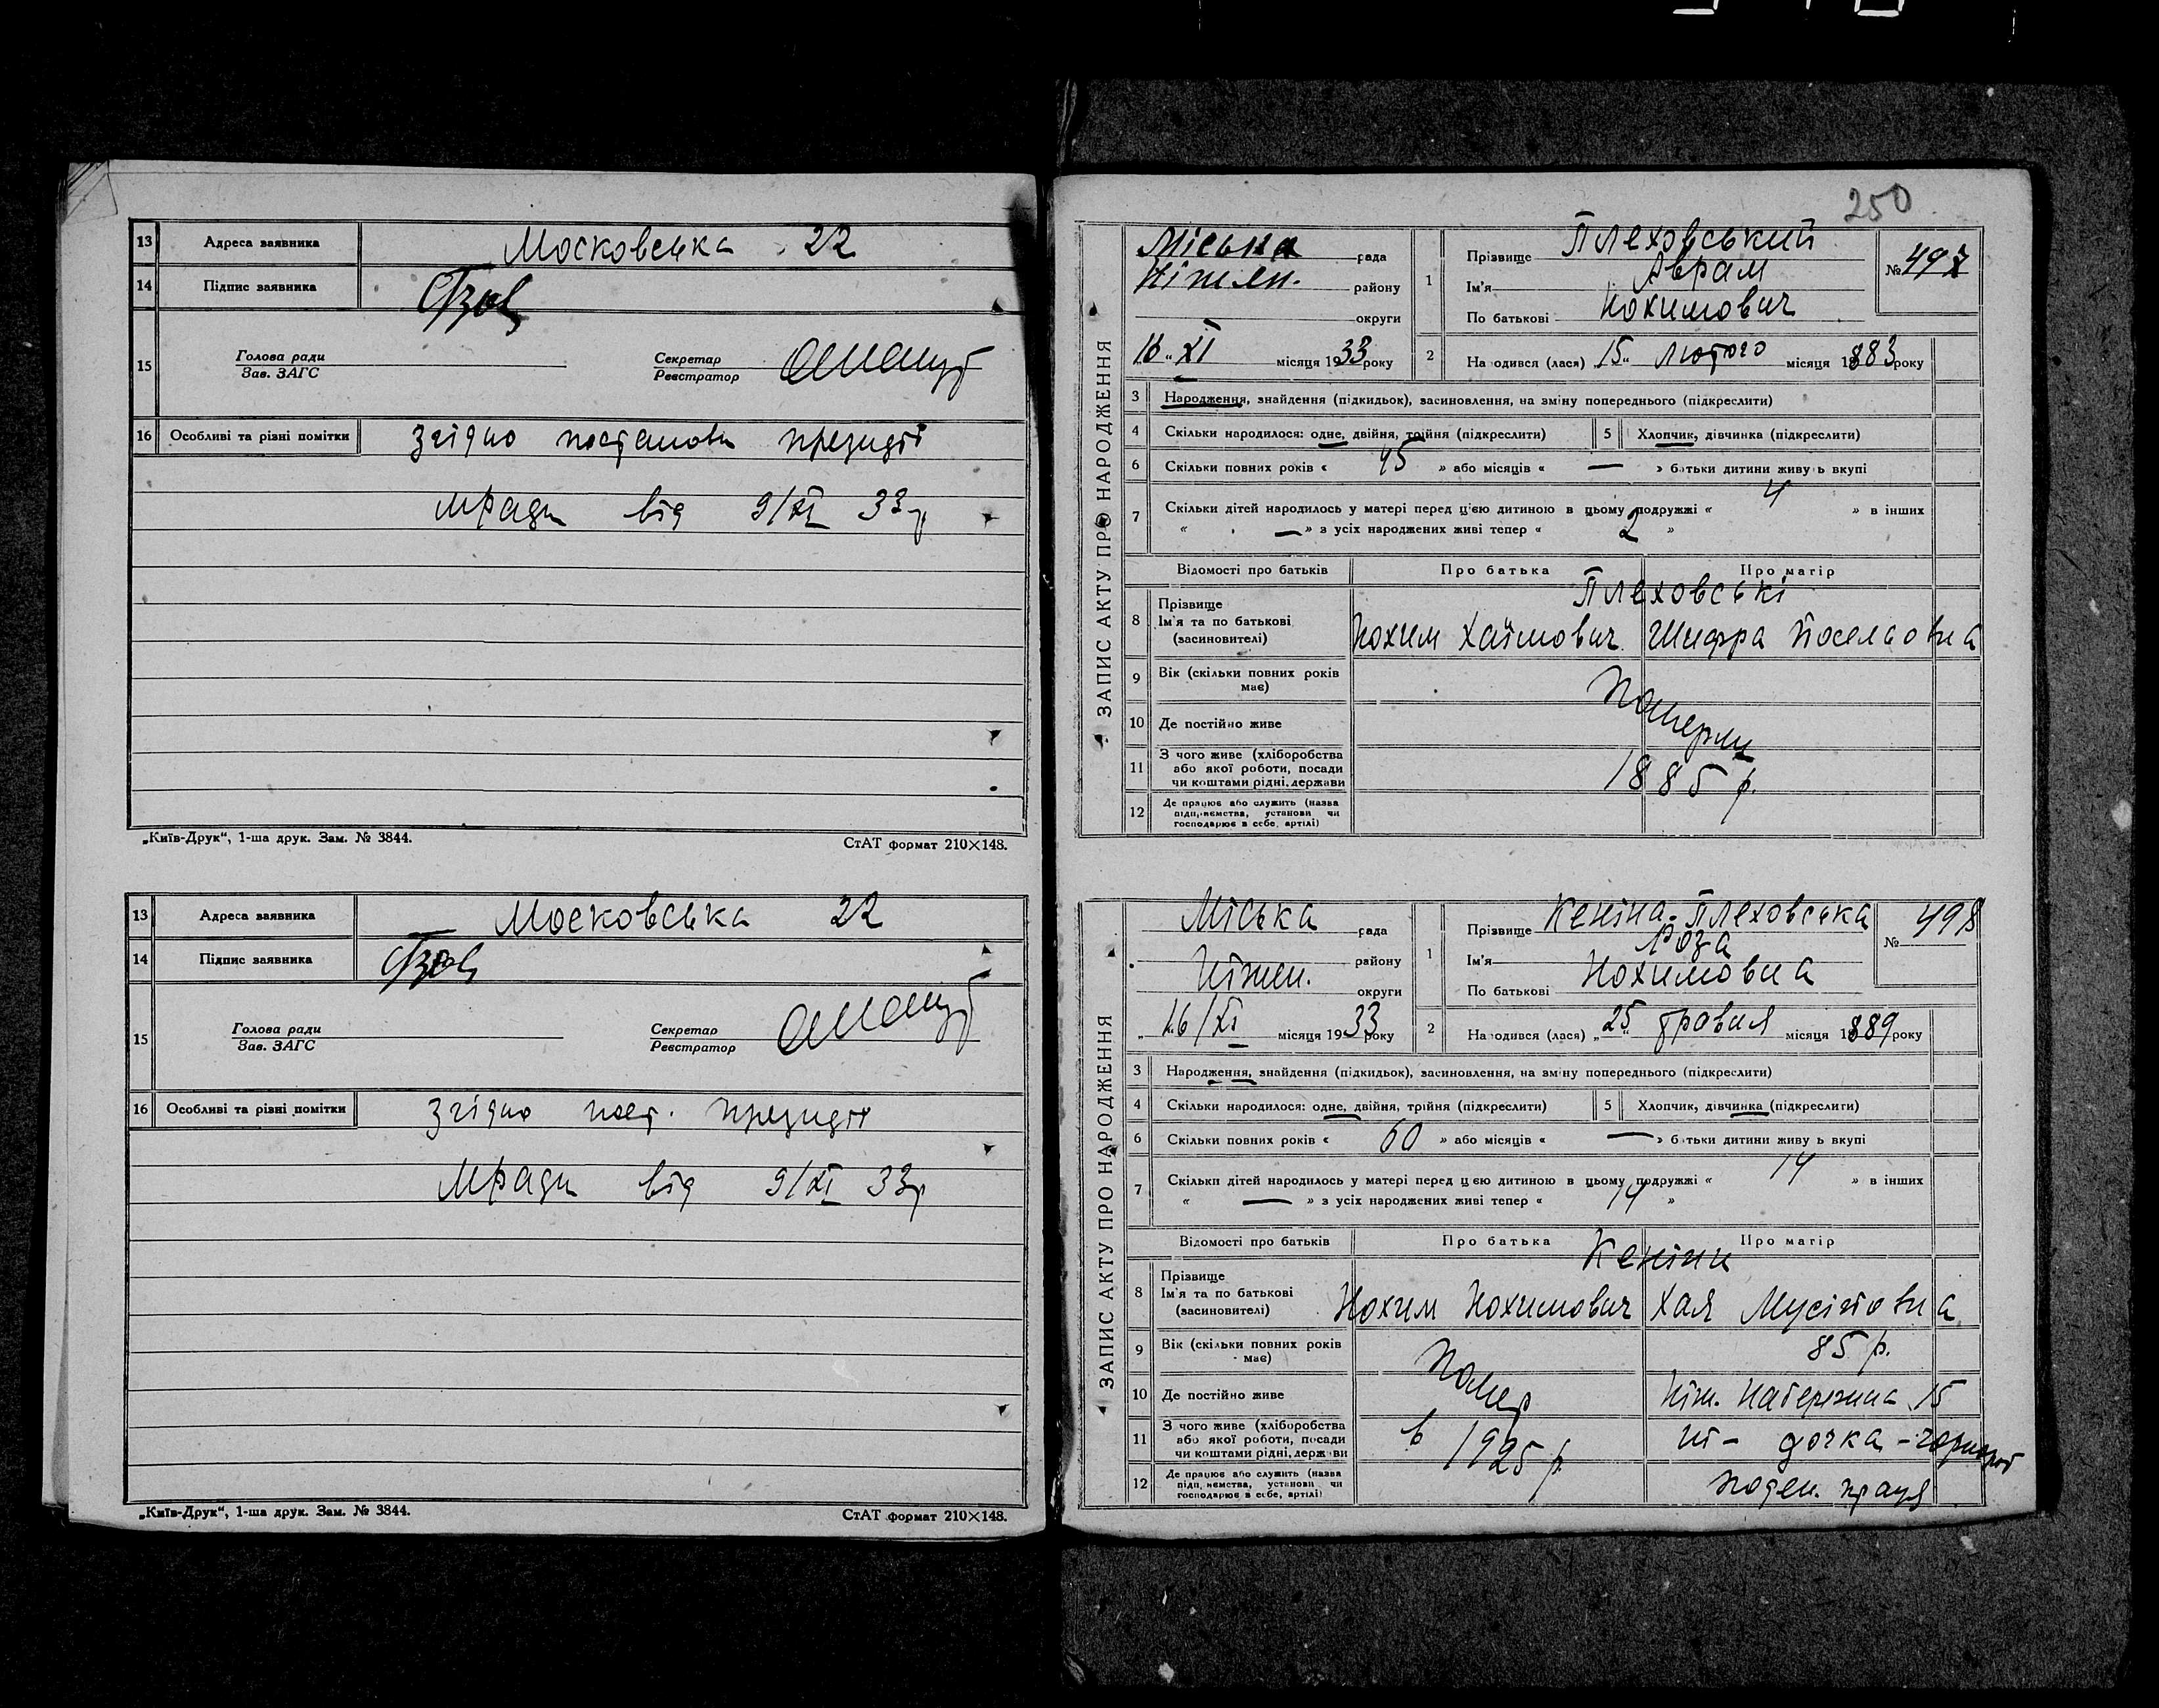 13 Адреса заявника Московська 22
14 Підпис заявника
15 Голова ради
Зав. ЗАГС
Секретар
Реєстратор
16 Особливі та різні помітки Згідно постанови президії
мради від 9/XI 33р
„Київ-Друк“, 1-ша друк. Зам. № 3844. СтАТ формат 210×148.
13 Адреса заявника Московська 22
14 Підпис заявника
15 Голова ради
Зав. ЗАГС
Секретар
Реєстратор
16 Особливі та різні помітки Згідно пост. президії
Мради від 9/XI 33р
„Київ-Друк“, 1-ша друк. Зам. № 3844. СтАТ формат 210×148.
250
ЗАПИС АКТУ ПРО НАРОДЖЕННЯ
Міська рада
Ніжен. району
округи
16 „ XI місяця 1933 року
1 Прізвище Плеховський
Ім'я Аврам
По батькові Нохимович
№ 497
2 Народився (лася) „15“ лютого місяця 1883 року
3 Народження, знайдення (підкидьок), засиновлення, на зміну попереднього (підкреслити)
4 Скільки народилося: одне, двійня, трійня (підкреслити) 5 Хлопчик, дівчинка (підкреслити)
6 Скільки повних років « 45 » або місяців « — » батьки дитини живуть вкупі
7 Скільки дітей народилось у матері перед цією дитиною в цьому подружжі « 4 » в інших
« — » з усіх народжених живі тепер « 2 »
Відомості про батьків Про батька Про матір
Плеховські
8 Прізвище
Ім'я та по батькові
(засиновителі)
Нохим Хаїмович Шифра Йосельовна
9 Вік (скільки повних років має)
Померли
10 Де постійно живе
11 З чого живе (хліборобства
або якої роботи, посади
чи коштами рідні, держави
1885 р.
12 Де працює або служить (назва
підприємства, установи чи
господарює в себе, артілі)
ЗАПИС АКТУ ПРО НАРОДЖЕННЯ
Міська рада
району
Ніжен. округи
„16/XI місяця 1933 року
1 Прізвище Кеніна-Плеховська
Ім'я Роза
По батькові Нохимовна
№ 498
2 Народився (лася) „25“ травня місяця 1889 року
3 Народження, знайдення (підкидьок), засиновлення, на зміну попереднього (підкреслити)
4 Скільки народилося: одне, двійня, трійня (підкреслити) 5 Хлопчик, дівчинка (підкреслити)
6 Скільки повних років « 60 » або місяців « — » батьки дитини живуть вкупі
7 Скільки дітей народилось у матері перед цією дитиною в цьому подружжі « 14 » в інших
« — » з усіх народжених живі тепер « 14 »
Відомості про батьків Про батька Про матір
Кеніни
8 Прізвище
Ім'я та по батькові
(засиновителі)
Нохим Нохимович Хая Мусіївовна
9 Вік (скільки повних років має)
Помер 85 р.
10 Де постійно живе Ніж. Набережна 15
11 З чого живе (хліборобства
або якої роботи, посади
чи коштами рідні, держави
в 1925 р. дочка - чорнороб
12 Де працює або служить (назва
підприємства, установи чи
господарює в себе, артілі)
поден. праця